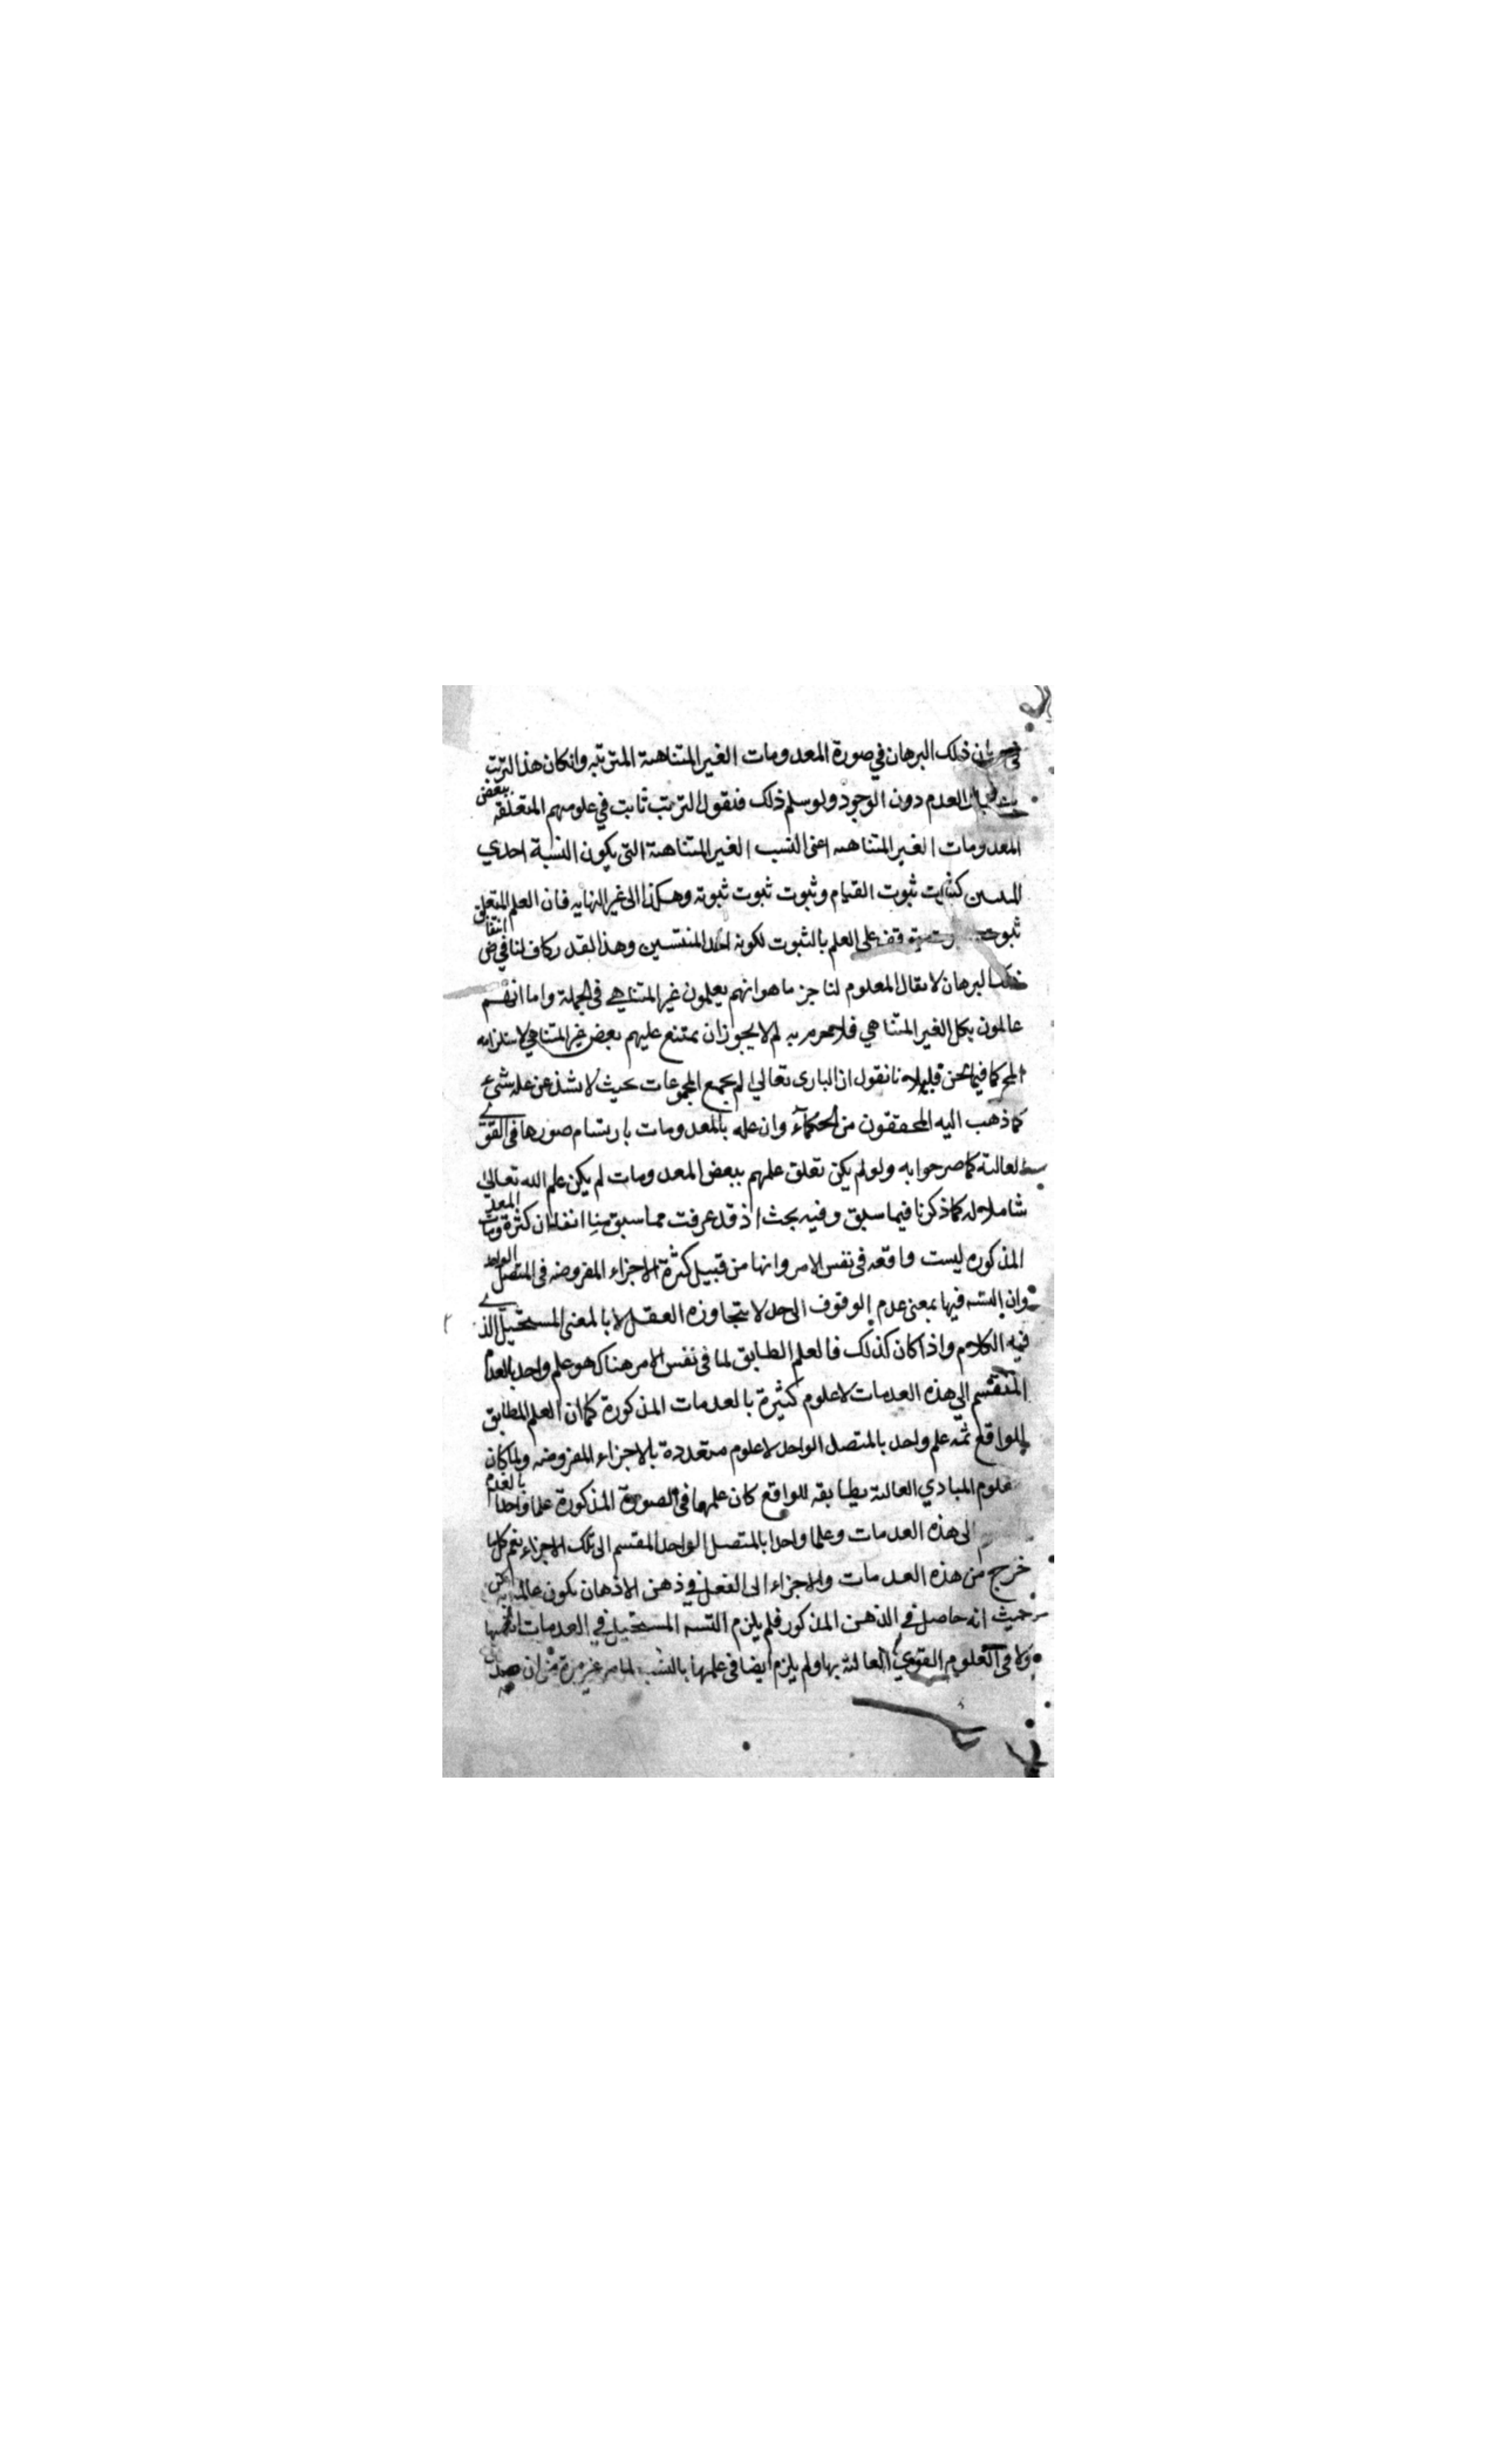 ذلك البرهان في صورة المعدومات الغير المتناهية المترتبه وانكان هذا الترتب
العدم دون الوجود ولو سلم ذلك فنقول الترتب ثابت في علومهم المتعلقه ببعض
المعدومات الغير المتناهيه اعنى النسب الغير المتناهية التى يكون النسبة احدي
ثبوت القيام وثبوت ثبوت ثبوته وهكذا الى غير النهايه فان العلم المتعلق
ثبوت على العلم بالثبوت لكونه احد المنتسبين وهذا القدر كاف لنا في انتقاض
ذلك البرهان لا يقال المعلوم لنا جزما هو انهم يعلمون غير المتناهي في الجملة واما انهم
عالمون بكل الغير المتناهي فلا لم لا يجوز ان يمتنع عليهم بعض غير المتناهي لاستلزامه
كما فيما نحن لانا نقول ان البارى تعالى لم يجمع المجموعات بحيث لا يشذ عن علمه شيء
كما ذهب اليه المحققون من الحكماء وان علمه بالمعدومات بارتسام صورها في القوى
العالية كما صرحوا به ولو لم يكن تعلق علمهم ببعض المعدومات لم يكن علم الله تعالى
شاملا له كما ذكرنا فيما سبق وفيه بحث اذ قد عرفت مما سبق منا انفا ان كثرة المعدومات
المذكوره ليست واقعه في نفس الامر وانها من قبيل كثرة الاجزاء المفروضه في المتصل الواحد
وان التسـه فيها بمعنى عدم الوقوف الى حد لا يتجاوزه العقل لا بالمعنى المستحيل الذي
فيه الكلام واذا كان كذلك فالعلم الطابق لما في نفس الامر هناك هو علم واحد بالعدم
المنقسم الي هذه العدمات لا علوم كثيرة بالعدمات المذكورة كما ان العلم المطابق
للواقع ثمه علم واحد بالمتصل الواحد لا علوم متعددة بالاجزاء المفروضه ولما كان
علوم المبادي العالية يطابقه للواقع كان علمها في الصورة المذكورة علما واحدا بالعدم
الى هذه العدمات وعلما واحدا بالمتصل الواحد المقسم الى تلك الاجزاء نعم كلما
خرج من هذه العدمات والاجزاء الى الفعل في ذهن الاذهان يكون عالمة به
حيث انه حاصل في الذهن المذكور فلم يلزم التسـه المستحيل في العدمات انفسها
ولا في العلوم القوي العالية بها ولم يلزم ايضا في علمها بالنسب لما مر غير مرة من ان